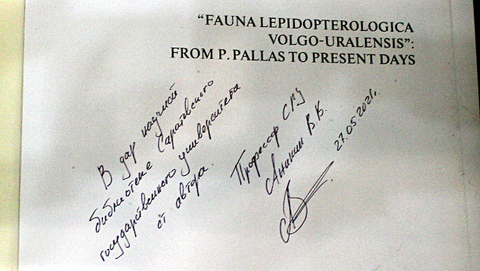 “FAUNA LEPIDOPTEROLOGICA
VOLGO-URALENSIS”:
FROM P. PALLAS TO PRESENT DAYS
В дар научной
библиотеке Саратовского
государственного университета
от автора.
Профессор СГУ
Аникин В.В.
27.05.2021г.